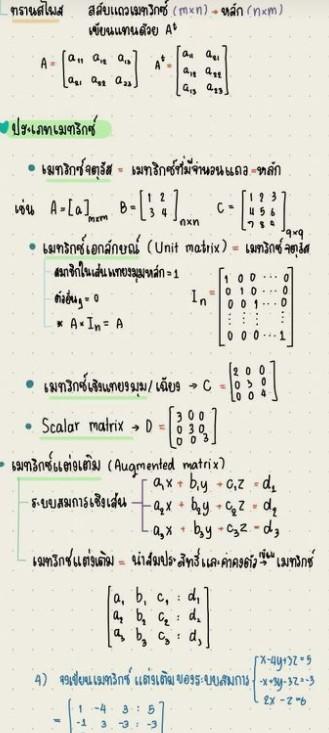 ทรานสโพส สลับแถวเมทริกซ์ (m×n) → หลัก (n×m)
เขียนแทนด้วย Aᵗ
A = [a₁₁ a₁₂ a₁₃ Aᵗ = [a₁₁ a₂₁
a₂₁ a₂₂ a₂₃] a₁₂ a₂₂
a₁₃ a₂₃]
ประเภทเมทริกซ์
• เมทริกซ์จตุรัส = เมทริกซ์ที่มีจำนวนแถว = หลัก
เช่น A = [a]ₘₓₘ B = [1 2 C = [1 2 3
3 4]ₙₓₙ 4 5 6
7 8 9]
• เมทริกซ์เอกลักษณ์ (Unit matrix) = เมทริกซ์จตุรัส
สมาชิกในเส้นทแยงมุมหลัก = 1
ตัวอื่นๆ = 0
* A × Iₙ = A
Iₙ = [1 0 0 ... 0
0 1 0 ... 0
0 0 1 ... 0
⋮ ⋮ ⋮ ⋮
0 0 0 ... 1]
• เมทริกซ์เชิงทแยงมุม/เฉียง → C = [2 0 0
0 3 0
0 0 4]
• Scalar matrix → D = [3 0 0
0 3 0
0 0 3]
• เมทริกซ์แต่งเติม (Augmented matrix)
a₁x + b₁y + c₁z = d₁
ระบบสมการเชิงเส้น a₂x + b₂y + c₂z = d₂
a₃x + b₃y + c₃z = d₃
เมทริกซ์แต่งเติม = นำสัมประสิทธิ์และค่าคงตัว เขียน → เมทริกซ์
[a₁ b₁ c₁ : d₁
a₂ b₂ c₂ : d₂
a₃ b₃ c₃ : d₃]
4) จงเขียนเมทริกซ์แต่งเติมของระบบสมการ {x-4y+3z=5
-x+3y-3z=-3
2x-z=6
= [1 -4 3 : 5
-1 3 -3 : -3